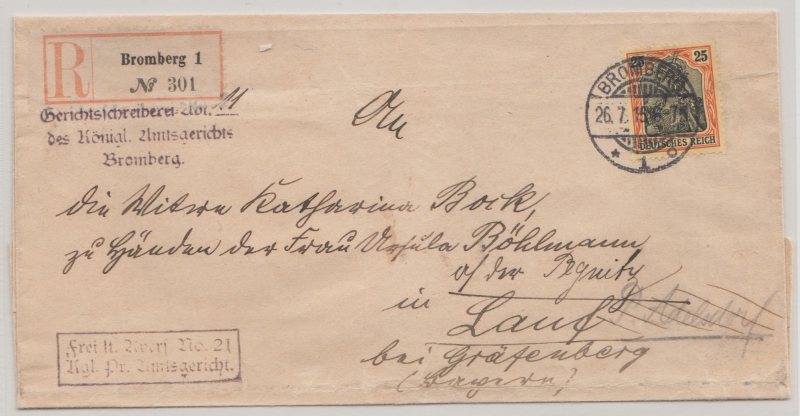 R
Bromberg 1
№ 301
Gerichtschreiberei Abt. 11
des Königl. Amtsgerichts
Bromberg.
25 25
DEUTSCHES REICH
BROMBERG
26.7.15
* 1
An
die Witwe Katharina Bock,
zu Händen der Frau Ursula Böhlmann
a/ der Pegnitz
in
Lauf
bei Gräfenberg
(Bayern)
Frei lt. Avers No. 21
Kgl. Pr. Amtsgericht.